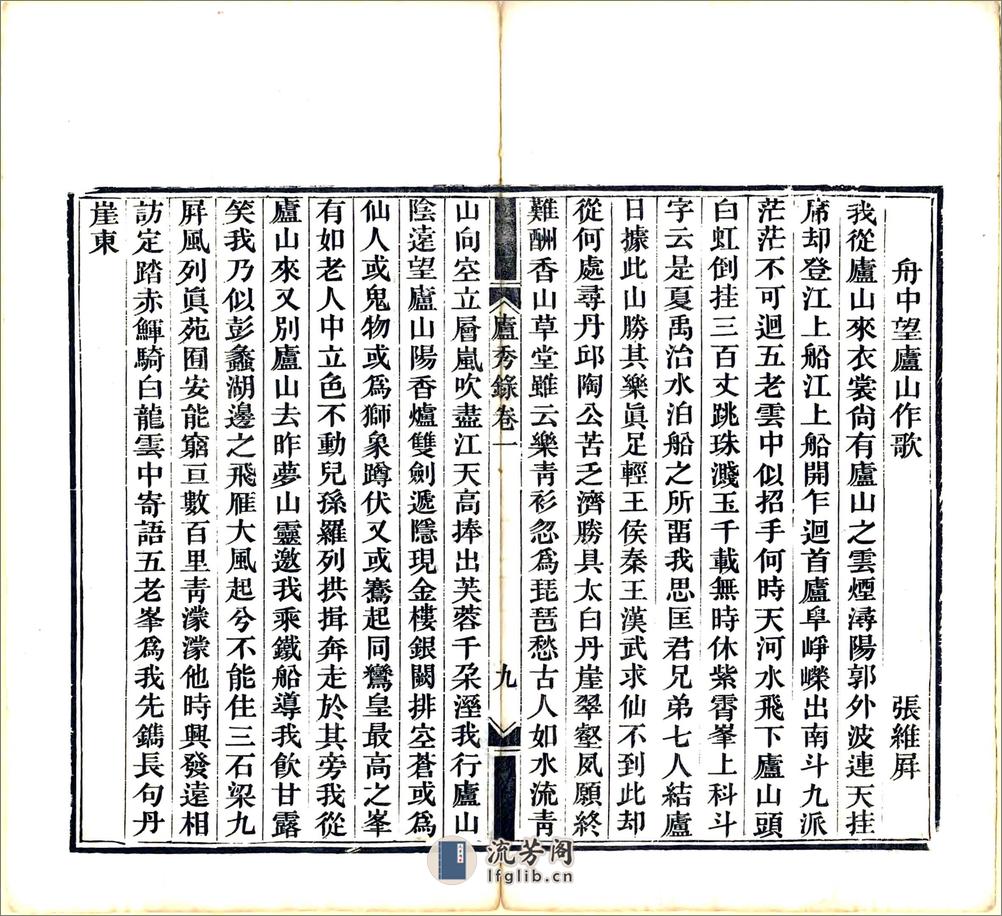 舟中望廬山作歌　張維屛
我從廬山來衣裳尙有廬山之雲煙潯陽郭外波連天挂
席却登江上船江上船開乍迴首廬阜崢嶸出南斗九派
茫茫不可迴五老雲中似招手何時天河水飛下廬山頭
白虹倒挂三百丈跳珠濺玉千載無時休紫霄峯上科斗
字云是夏禹治水泊船之所畱我思匡君兄弟七人結廬
日據此山勝其樂眞足輕王侯秦王漢武求仙不到此却
從何處尋丹邱陶公苦乏濟勝具太白丹崖翠壑夙願終
難酬香山草堂雖云樂靑衫忽爲琵琶愁古人如水流靑
廬秀錄卷一　九
山向空立層嵐吹盡江天高捧出芙蓉千朶溼我行廬山
陰遠望廬山陽香爐雙劍遞隱現金樓銀闕排空蒼或爲
仙人或鬼物或爲獅象蹲伏又或騫起同鸞皇最高之峯
有如老人中立色不動兒孫羅列拱揖奔走於其旁我從
廬山來又別廬山去昨夢山靈邀我乘鐵船導我飮甘露
笑我乃似彭蠡湖邊之飛雁大風起兮不能住三石梁九
屛風列眞苑囿安能窮亘數百里靑濛濛他時興發遠相
訪定踏赤鯶騎白龍雲中寄語五老峯爲我先鐫長句丹
崖東
流芳阁
lfglib.cn